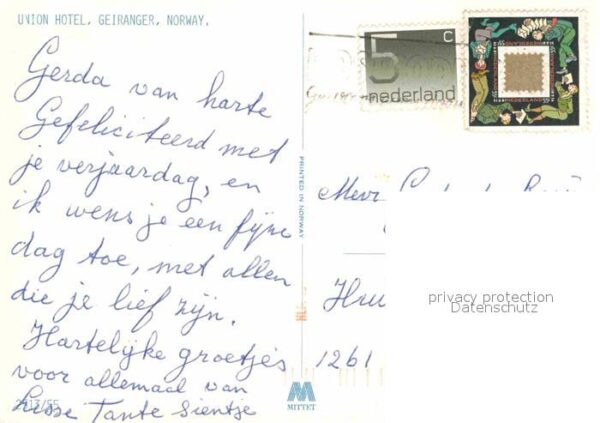 UNION HOTEL, GEIRANGER, NORWAY.
Gerda van harte
Gefeliciteerd met
je verjaardag, en
ik wens je een fijne
dag toe, met allen
die je lief zijn.
Hartelijke groetjes
voor allemaal van
Tante Sientje
PRINTED IN NORWAY
MITTET
5 c
nederland
NEDERLAND
Mevr
1261
privacy protection
Datenschutz